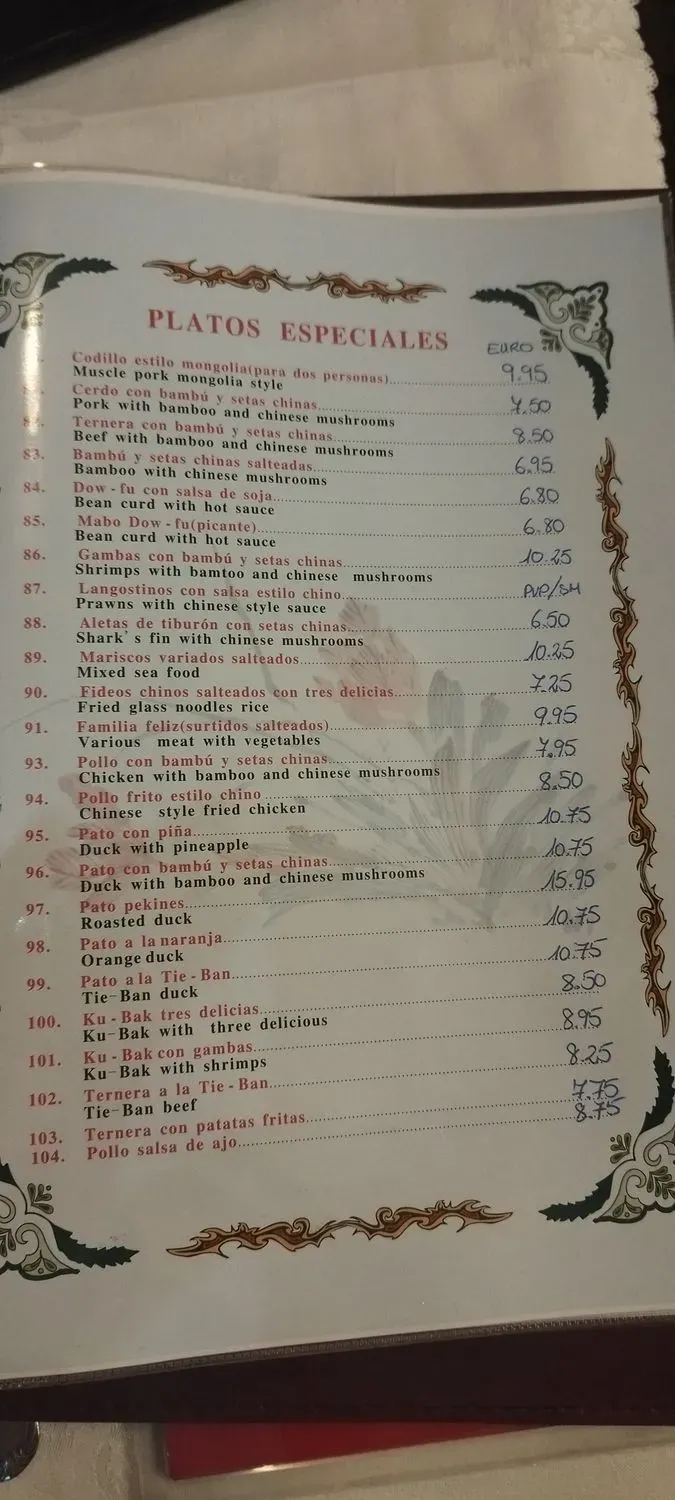 PLATOS ESPECIALES
EURO
Codillo estilo mongolia(para dos personas) 9.95
Muscle pork mongolia style
Cerdo con bambú y setas chinas 7.50
Pork with bamboo and chinese mushrooms
82. Ternera con bambú y setas chinas 8.50
Beef with bamboo and chinese mushrooms
83. Bambú y setas chinas salteadas 6.95
Bamboo with chinese mushrooms
84. Dow-fu con salsa de soja 6.80
Bean curd with hot sauce
85. Mabo Dow-fu(picante) 6.80
Bean curd with hot sauce
86. Gambas con bambú y setas chinas 10.25
Shrimps with bamtoo and chinese mushrooms
87. Langostinos con salsa estilo chino PVP/SM
Prawns with chinese style sauce
88. Aletas de tiburón con setas chinas 6.50
Shark's fin with chinese mushrooms
89. Mariscos variados salteados 10.25
Mixed sea food
90. Fideos chinos salteados con tres delicias 7.25
Fried glass noodles rice
91. Familia feliz(surtidos salteados) 9.95
Various meat with vegetables
93. Pollo con bambú y setas chinas 7.95
Chicken with bamboo and chinese mushrooms
94. Pollo frito estilo chino 8.50
Chinese style fried chicken
95. Pato con piña 10.75
Duck with pineapple
96. Pato con bambú y setas chinas 10.75
Duck with bamboo and chinese mushrooms
97. Pato pekines 15.95
Roasted duck
98. Pato a la naranja 10.75
Orange duck
99. Pato a la Tie-Ban 10.75
Tie-Ban duck
100. Ku-Bak tres delicias 8.50
Ku-Bak with three delicious
101. Ku-Bak con gambas 8.95
Ku-Bak with shrimps
102. Ternera a la Tie-Ban 8.25
Tie-Ban beef
103. Ternera con patatas fritas 7.75
104. Pollo salsa de ajo 8.75